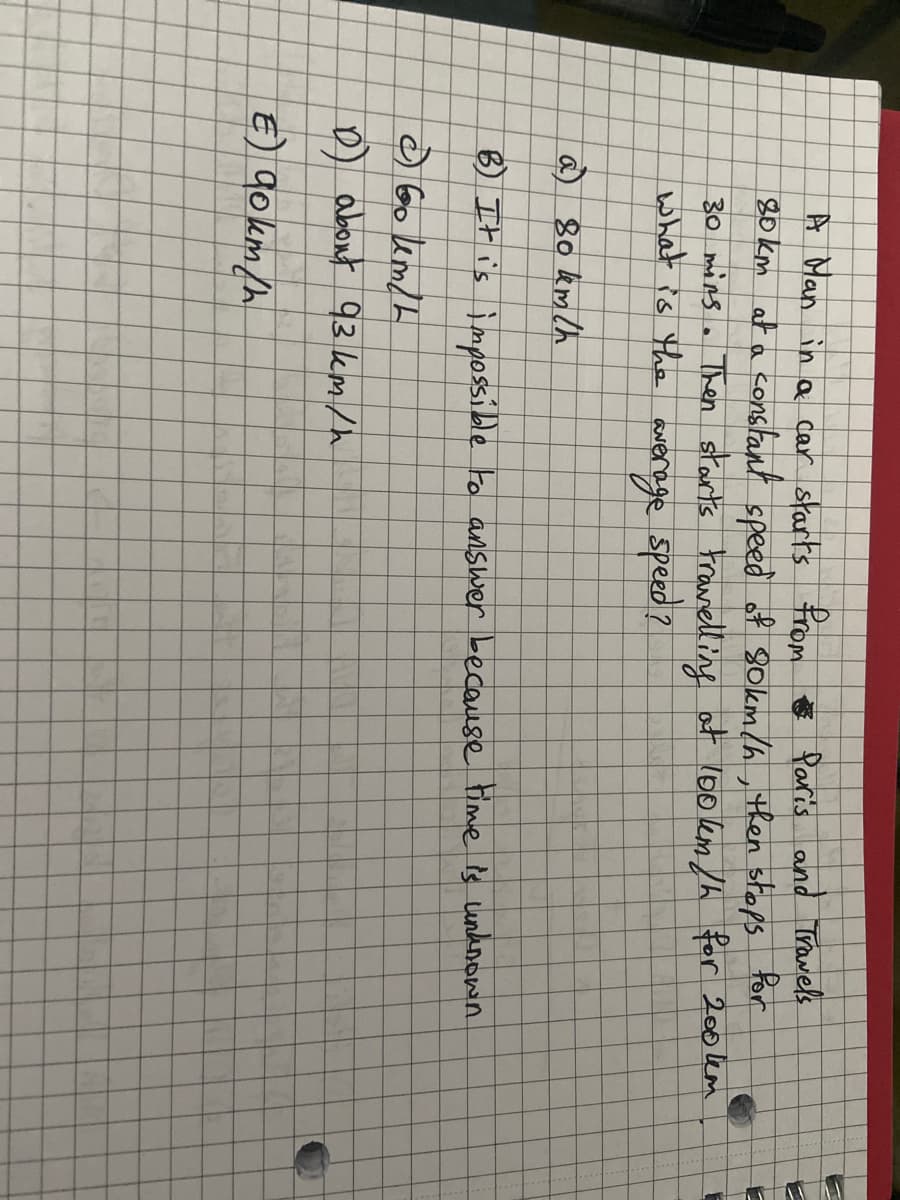 A Man in a car starts from Paris and Travels
80km at a constant speed of 80km/h, then stops for
30 mins. Then starts travelling at 100km/h for 200km.
what is the average speed?
a) 80km/h
B) It is impossible to answer because time is unknown
c) 60km/h
D) about 93km/h
E) 90km/h